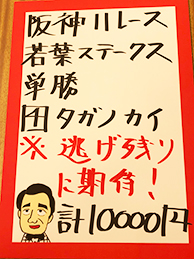 阪神11レース
若葉ステークス
単勝
④タガノカイ
※逃げ残り
に期待!
計10000円